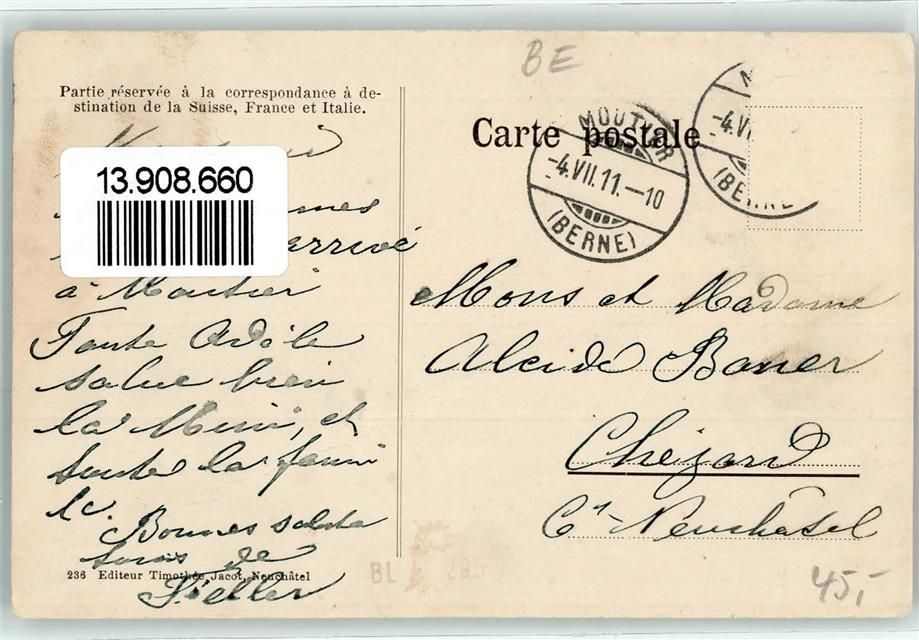 BE
Partie réservée à la correspondance à de-
stination de la Suisse, France et Italie.
Carte postale
MOUTIER
-4.VII.11.-10
(BERNE)
-4.VI
(BERNE
13.908.660
mes
arrivé
à Moutier
Tante Adèle
salue bien
la Mimi, et
toute la fami
le.
Bonnes saluta
tions de
236 Editeur Timothée Jacot, Neuchâtel
Mons et Madame
Alcide Boner
Chézard
Ct Neuchâtel
BL 295
45,-